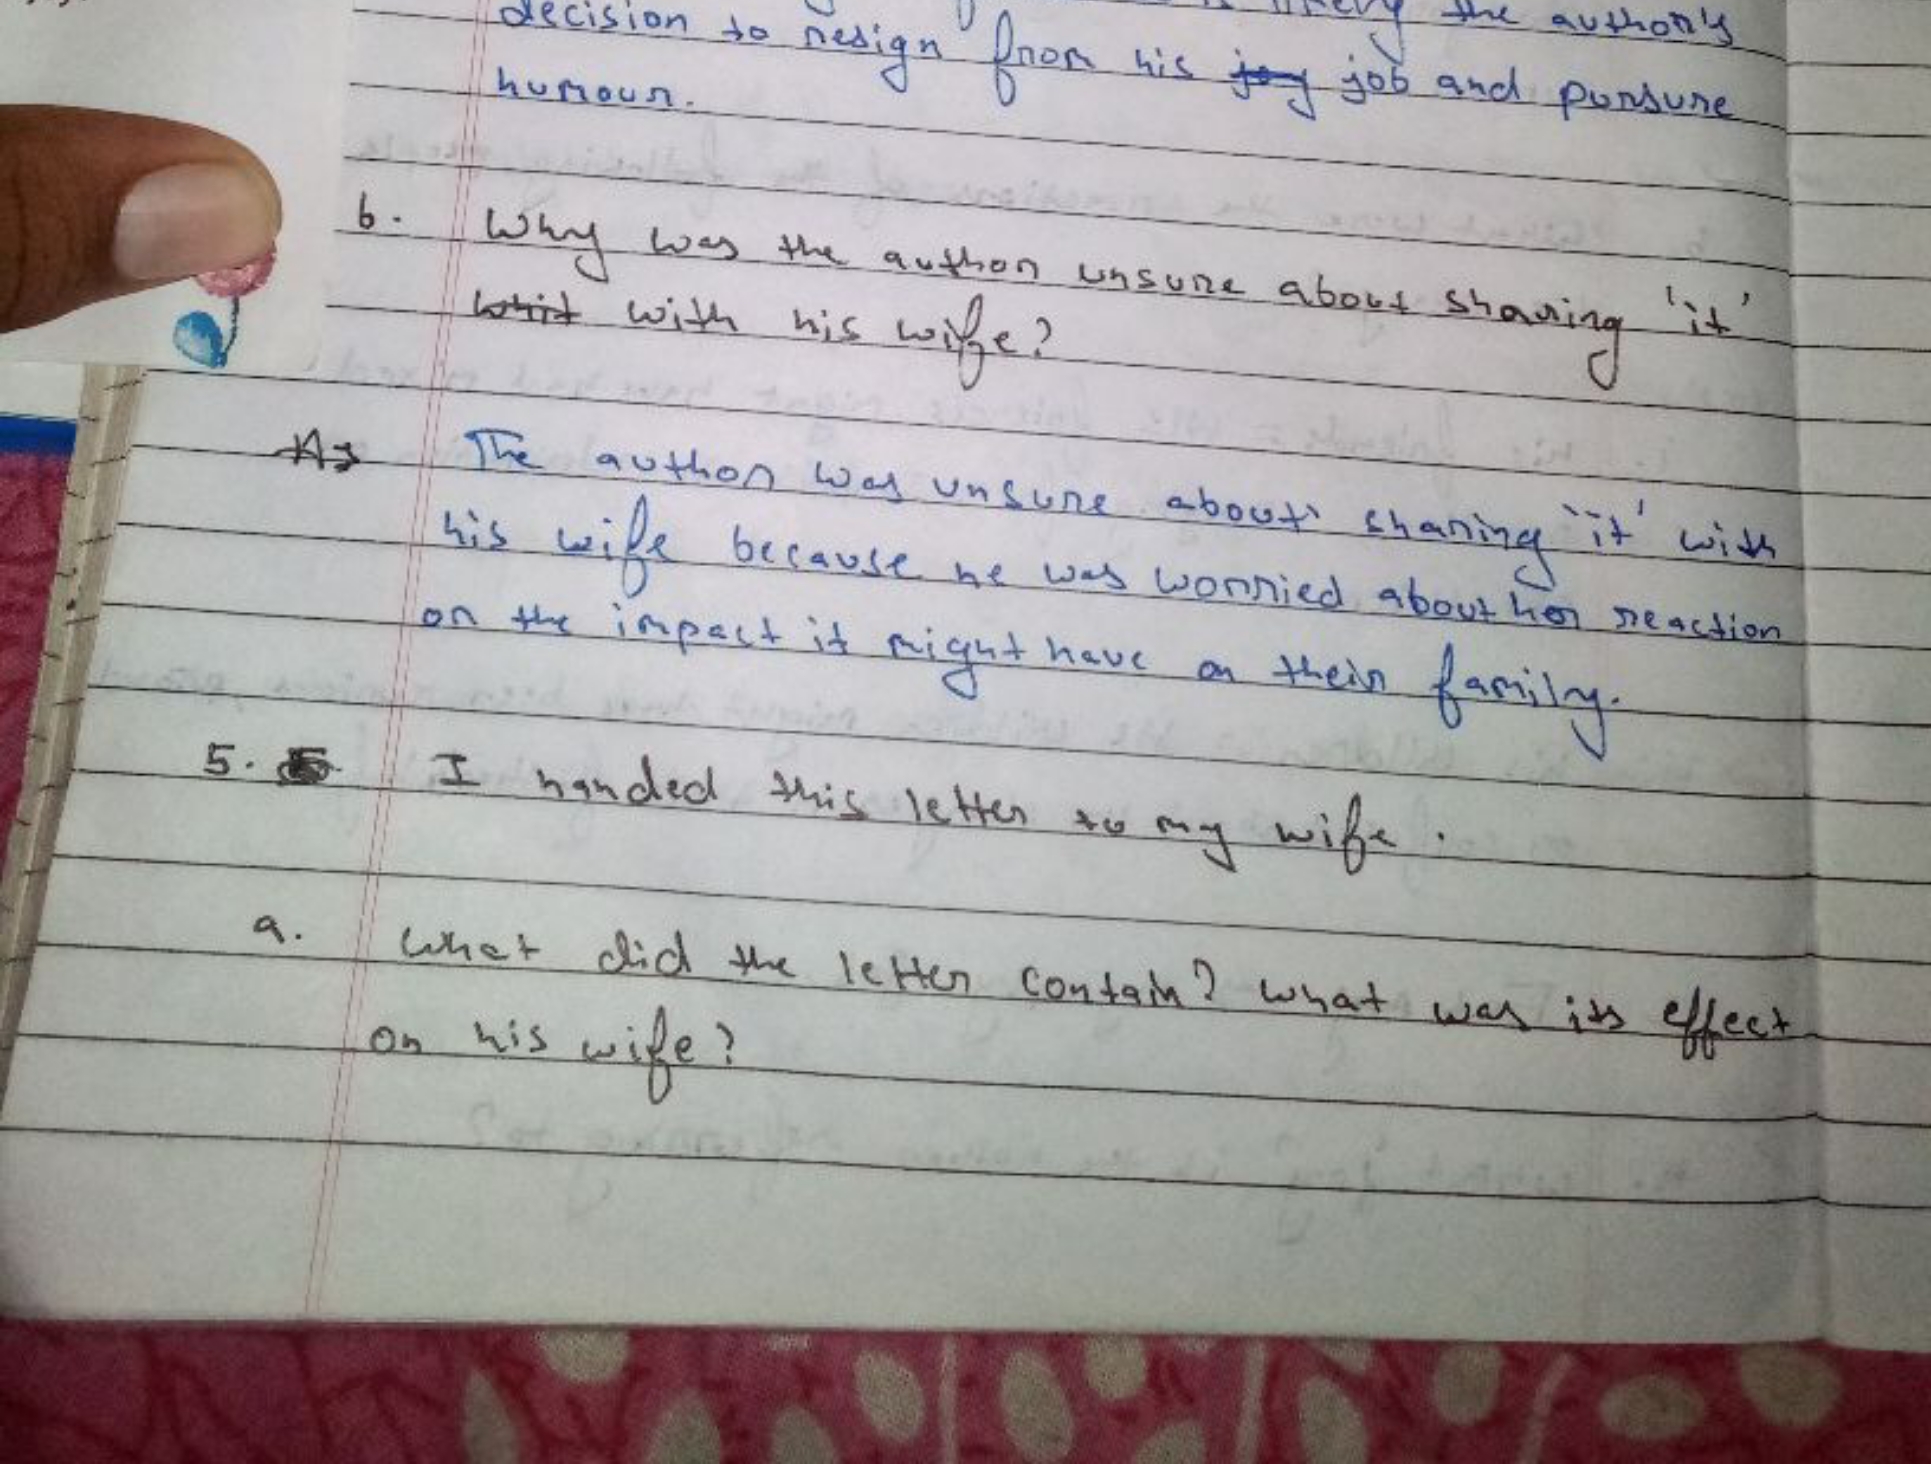 the author's
decision to resign from his joy job and pursure
humour.
b. Why was the author unsure about sharing 'it'
whit with his wife?
A> The author was unsure about sharing 'it' with
his wife because he was worried about her reaction
or the impact it might have on their family.
5. I handed this letter to my wife.
a. What did the letter contain? What was its effect
on his wife?